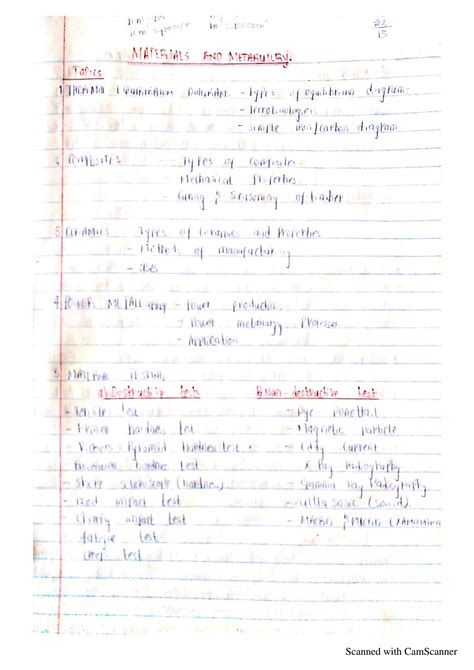 15
MATERIALS AND METALLURGY.
Topics
1. THERMAL EQUILIBRIUM DIAGRAM - Types of equilibrium diagrams
- Terminologies
- Simple iron/carbon diagram
2. COMPOSITES - Types of composites
- Mechanical Properties
- Curing & Seasoning of timber
3. CERAMICS Types of ceramics and Properties
- Methods of manufacturing
- Uses
4. POWER METALLURGY - Power production
- Power metallurgy Processes
- Application
5. MATERIAL TESTING
a) Destructive tests b) Non-destructive test
- Tensile test - Dye Penetrant
- Brinell hardness test - Magnetic particle
- Vickers Pyramid hardness test - Eddy current
- hardness test X Ray Radiography
- Shore scleroscope (hardness) - Gamma ray Radiography
- Izod impact test - Ultra sonic (sound).
- Charpy impact test - MACRO & MICRO EXAMINATION
- fatigue test
creep test
Scanned with CamScanner